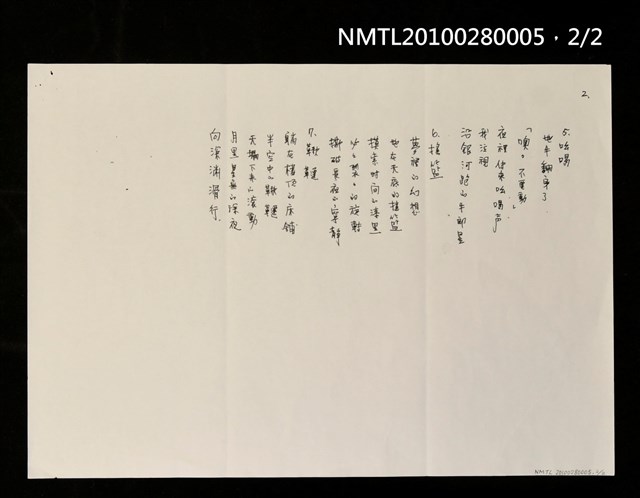 NMTL20100280005，2/2
2.
5. 吆喝
地牛翻身了
「噢。不要動」
夜裡傳來吆喝声
我注視
沿銀河跑的牛郎星
6. 搖籃
夢裡的幻想
在天底的搖籃
摸索時間的漆黑
的旋動
撕破黑夜的寧靜
7. 鞦韆
躺在樓頂的床鋪
半空中的鞦韆
天塌下來的滾動
月黑星無的深夜
向深淵滑行.
NMTL 20100280005, 2/2